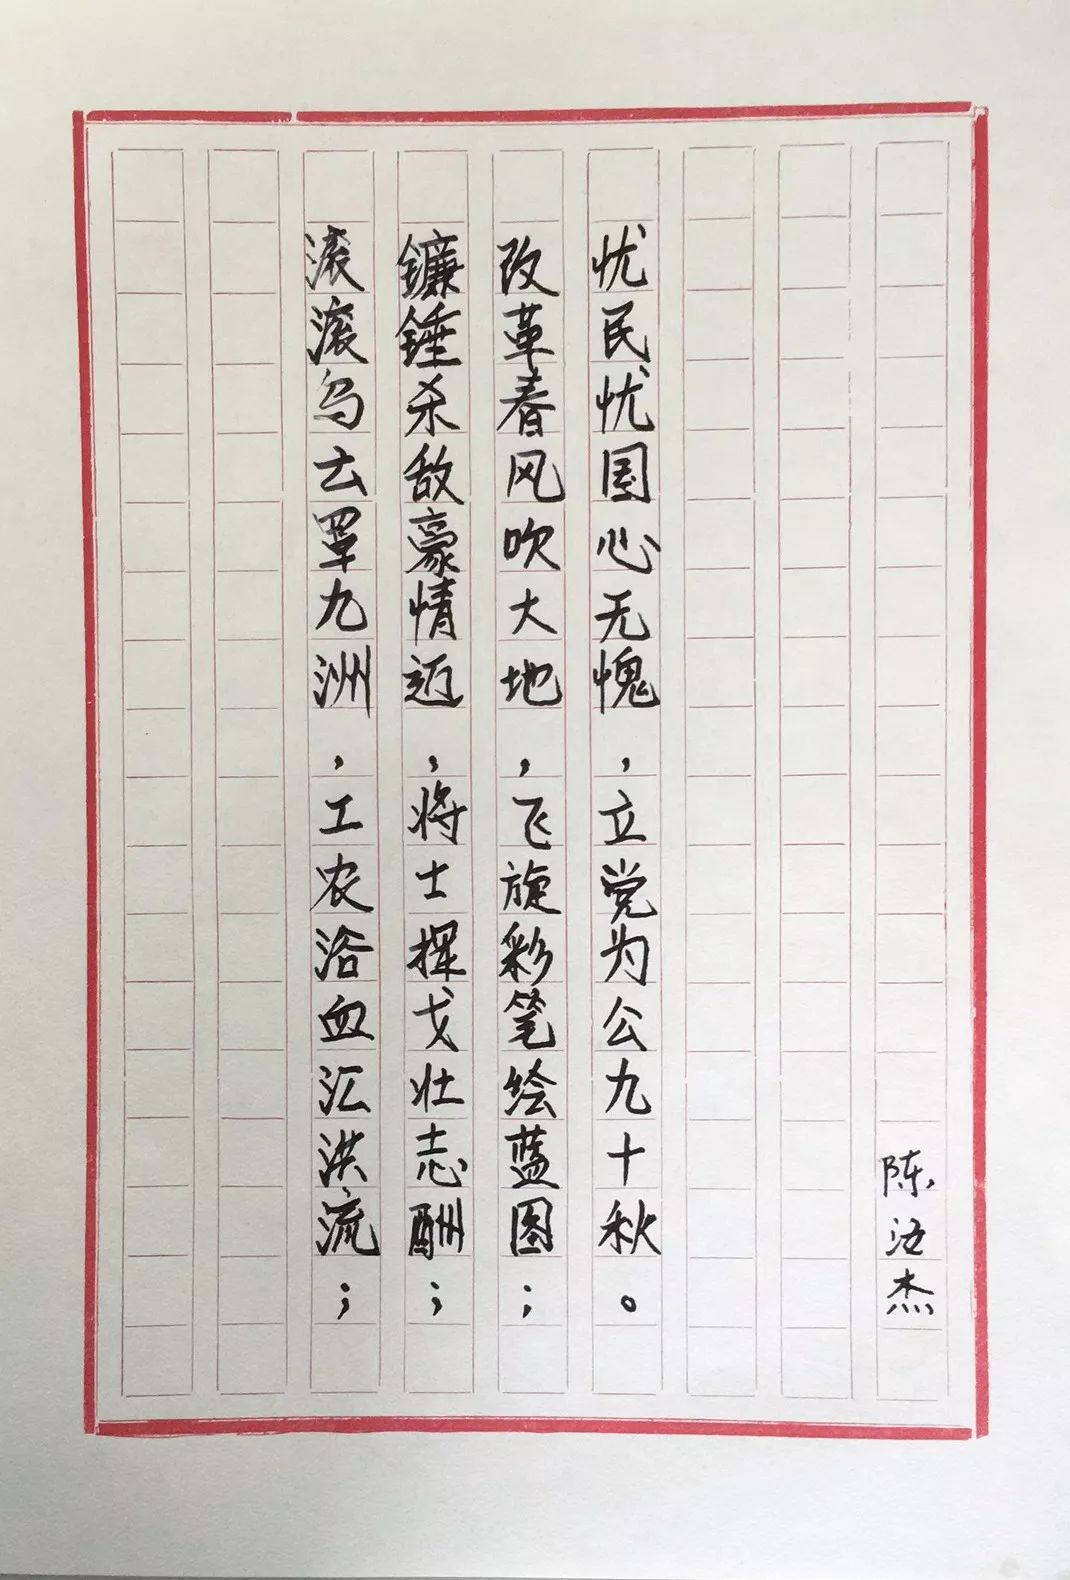 滚滚乌云罩九洲，工农浴血汇洪流；
镰锤杀敌豪情迈，将士挥戈壮志酬；
改革春风吹大地，飞旋彩笔绘蓝图；
忧民忧国心无愧，立党为公九十秋。
陈汝杰